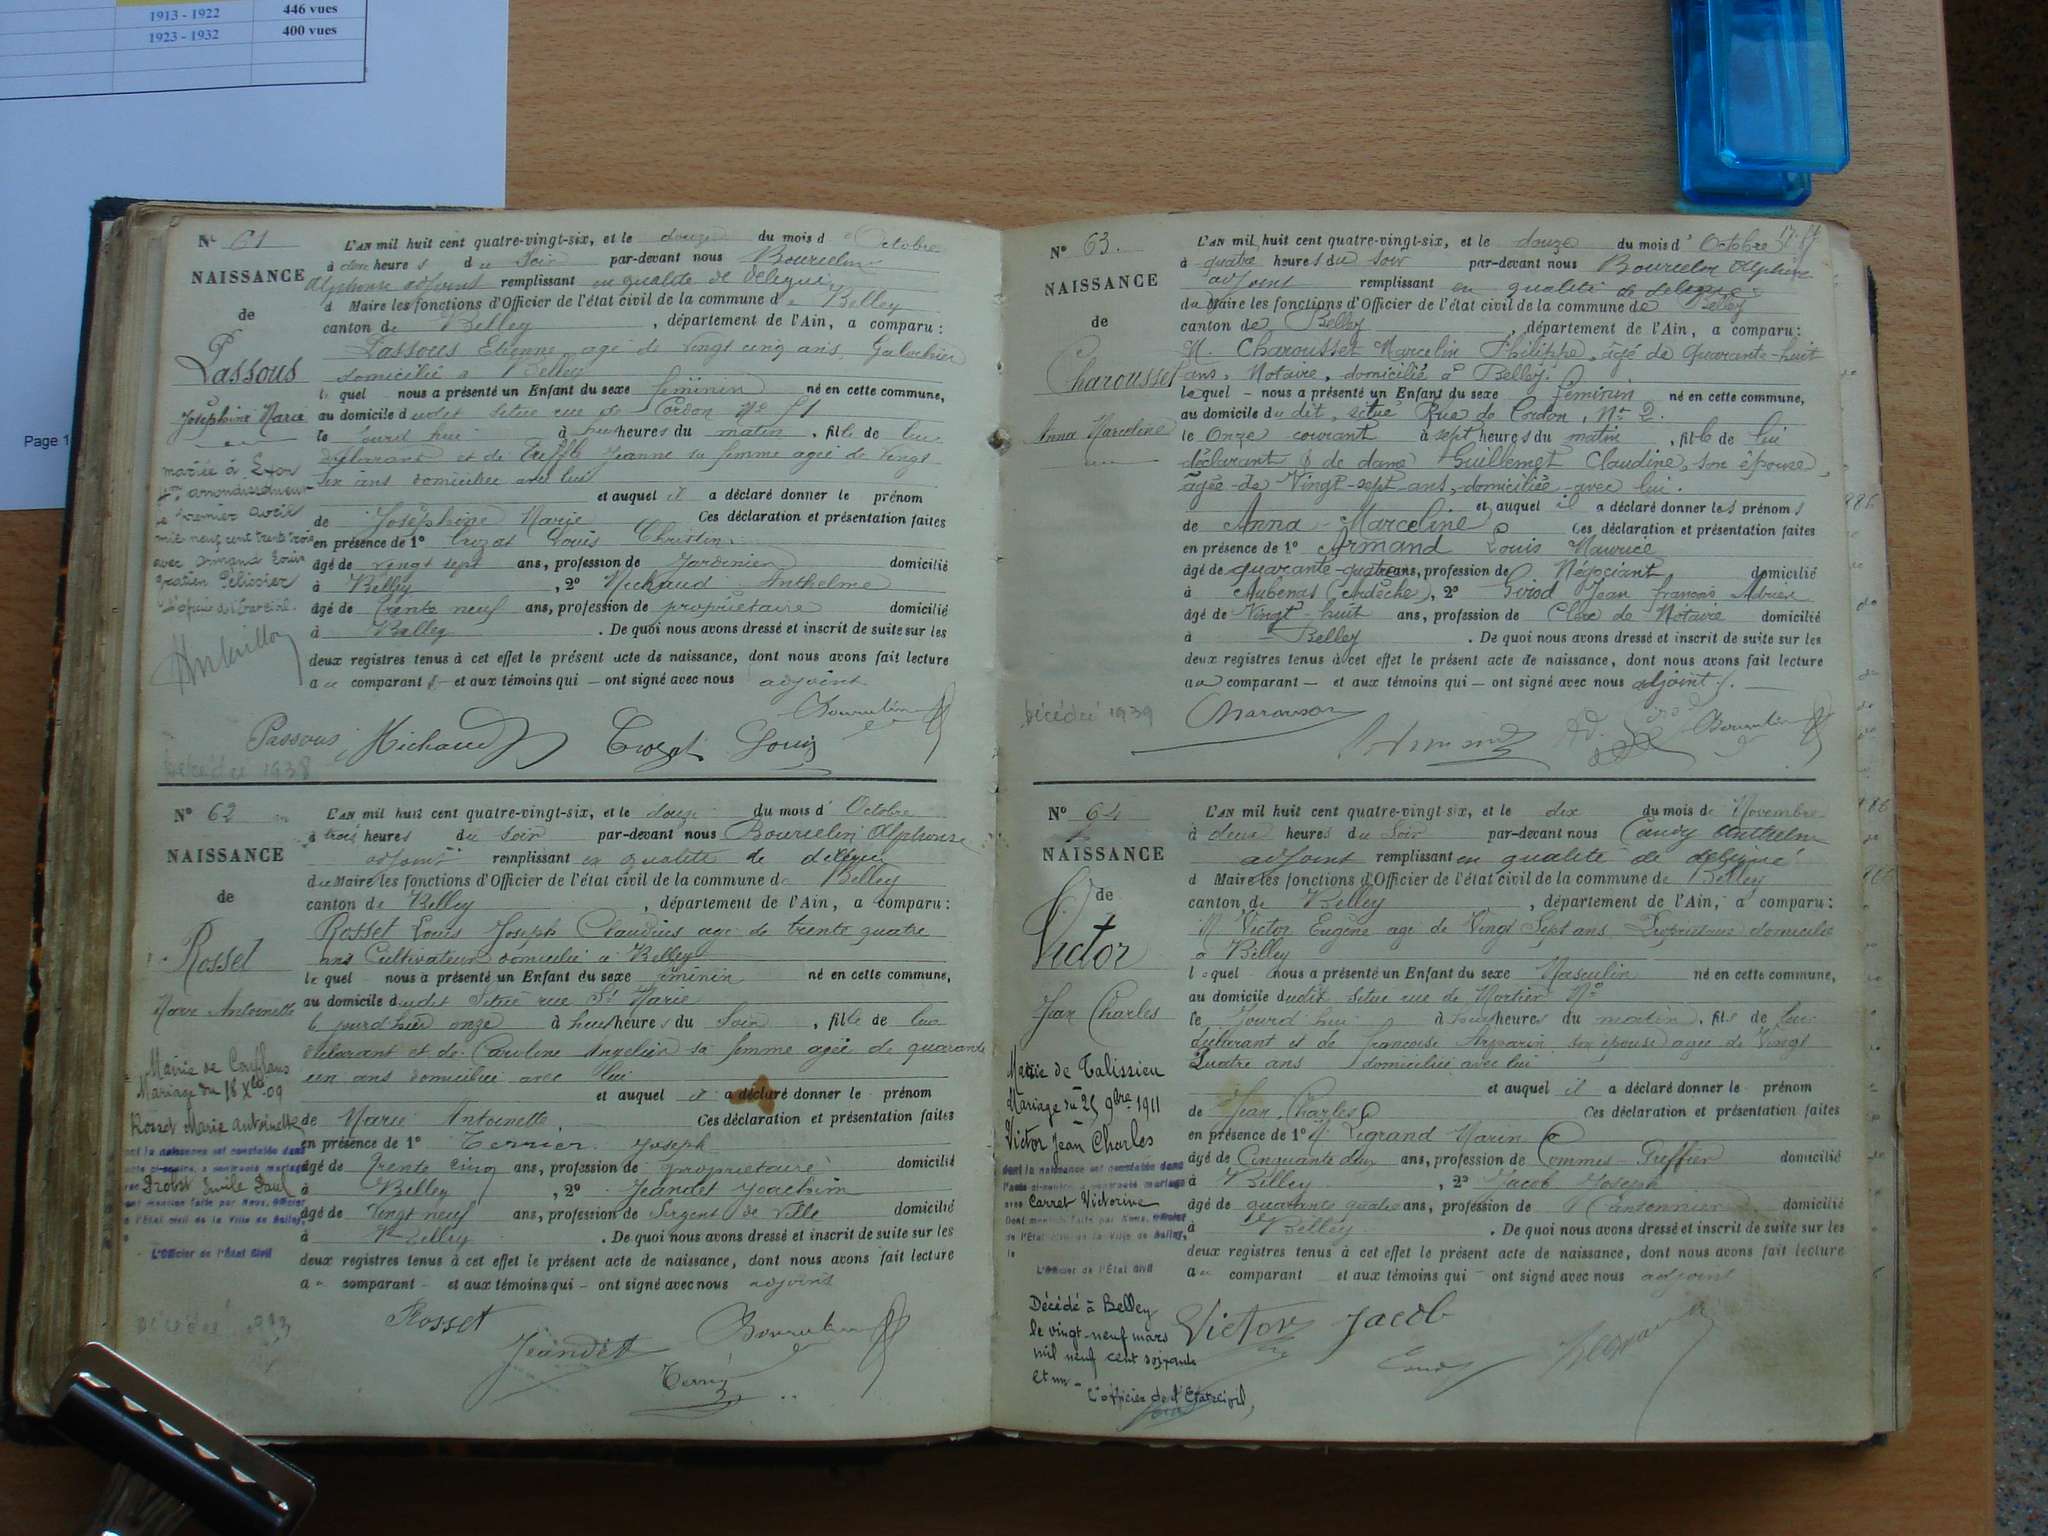 1913 - 1922 446 vues
1923 - 1932 400 vues
Page 1
N° 61
NAISSANCE
de
Passous
Joséphine Marie
mariée à Lyon
arrondissement
le premier avril
mil neuf cent trente trois
avec
L'AN mil huit cent quatre-vingt-six, et le douze du mois d'Octobre
à heures du Soir par-devant nous Bourcelin
Alphonse adjoint remplissant en qualité de délégué
d Maire les fonctions d'Officier de l'état civil de la commune de Belley
canton de Belley , département de l'Ain, a comparu :
Passous Etienne agé de vingt cinq ans, Galochier
domicilié à Belley
lequel nous a présenté un Enfant du sexe féminin né en cette commune,
au domicile dudit situé rue de Cordon No 51
le jourd'hui à heures du matin , fille de lui
déclarant et de Jeanne sa femme agée de vingt
un ans domiciliée avec lui
et auquel il a déclaré donner le prénom
de Joséphine Marie Ces déclaration et présentation faites
en présence de 1° Crozat Louis Christin
âgé de vingt sept ans, profession de Jardinier domicilié
à Belley , 2° Michaud Anthelme
âgé de trente neuf ans, profession de propriétaire domicilié
à Belley . De quoi nous avons dressé et inscrit de suite sur les
deux registres tenus à cet effet le présent acte de naissance, dont nous avons fait lecture
au comparant et aux témoins qui – ont signé avec nous adjoint
Passous Michaud Crozat Louis Bourcelin
Décédée 1938
N° 62
NAISSANCE
de
Rosset
Marie Antoinette
Mairie de Conflans
Mariage du 18 Xbre 09
Rosset Marie Antoinette
dont la naissance est constatée dans
acte ci-contre, a contracté mariage
avec Probst Emile Paul
dont mention faite par Nous, Officier
de l'État civil de la Ville de Belley,
L'Officier de l'État Civil
L'AN mil huit cent quatre-vingt-six, et le douze du mois d'Octobre
à trois heures du Soir par-devant nous Bourcelin Alphonse
adjoint remplissant en qualité de délégué
du Maire les fonctions d'Officier de l'état civil de la commune de Belley
canton de Belley , département de l'Ain, a comparu :
Rosset Louis Joseph Claudius agé de trente quatre
ans Cultivateur domicilié à Belley
lequel nous a présenté un Enfant du sexe féminin né en cette commune,
au domicile dudit situé rue Ste Marie
le jourd'hier onze à huit heures du Soir , fille de lui
déclarant et de Caroline Angelier sa femme agée de quarante
un ans domiciliée avec lui
et auquel il a déclaré donner le prénom
de Marie Antoinette Ces déclaration et présentation faites
en présence de 1° Terrier Joseph
âgé de trente cinq ans, profession de propriétaire domicilié
à Belley , 2° Jeandet Joachim
âgé de vingt neuf ans, profession de Sergent de Ville domicilié
à Belley . De quoi nous avons dressé et inscrit de suite sur les
deux registres tenus à cet effet le présent acte de naissance, dont nous avons fait lecture
au comparant et aux témoins qui – ont signé avec nous adjoint
Rosset Jeandet Bourcelin
Décédée
N° 63.
NAISSANCE
de
Charousset
Anna Marceline
L'AN mil huit cent quatre-vingt-six, et le douze du mois d'Octobre
à quatre heures du soir par-devant nous Bourcelin Alphonse
adjoint remplissant en qualité de délégué
du Maire les fonctions d'Officier de l'état civil de la commune de Belley
canton de Belley , département de l'Ain, a comparu :
M. Charousset Marcelin Philippe, âgé de quarante-huit
ans, Notaire, domicilié à Belley.
lequel – nous a présenté un Enfant du sexe féminin né en cette commune,
au domicile du dit, situé Rue de Cordon, No 2.
le Onze courant à sept heures du matin , fille de lui
déclarant & de dame Guillemet Claudine, son épouse,
âgée de Vingt-sept ans, domiciliée avec lui.
et auquel il a déclaré donner les prénoms
de Anna Marceline Ces déclaration et présentation faites
en présence de 1° Armand Louis Maurice
âgé de quarante-quatre ans, profession de Négociant domicilié
à Aubenas (Ardèche), 2° Girod Jean François Adrien
âgé de Vingt-huit ans, profession de Clerc de Notaire domicilié
à Belley . De quoi nous avons dressé et inscrit de suite sur les
deux registres tenus à cet effet le présent acte de naissance, dont nous avons fait lecture
au comparant – et aux témoins qui – ont signé avec nous adjoint.
Décédée 1939
N° 64
NAISSANCE
de
Victor
Jean Charles
Mairie de Talissieu
Mariage du 25 9bre 1911
Victor Jean Charles
dont la naissance est constatée dans
l'acte ci-contre, a contracté mariage
avec Carret Victorine
Dont mention faite par Nous, Officier
de l'État civil de la Ville de Belley,
le
L'Officier de l'État Civil
Décédé à Belley
le vingt-neuf mars
mil neuf cent soixante
et un –
L'officier de l'Etat civil,
L'AN mil huit cent quatre-vingt-six, et le dix du mois de Novembre
à deux heures du Soir par-devant nous Anthelme
adjoint remplissant en qualité de délégué
d Maire les fonctions d'Officier de l'état civil de la commune de Belley
canton de Belley , département de l'Ain, a comparu :
M. Victor Eugène agé de Vingt Sept ans, Propriétaire domicilié
à Belley
lequel nous a présenté un Enfant du sexe Masculin né en cette commune,
au domicile dudit situé rue de Mortier No
le Jourd'hui à heures du matin , fils de lui
déclarant et de Françoise son épouse agée de Vingt
Quatre ans domiciliée avec lui
et auquel il a déclaré donner le prénom
de Jean Charles Ces déclaration et présentation faites
en présence de 1° M Legrand Marin
âgé de Cinquante deux ans, profession de Commis Greffier domicilié
à Belley , 2° Jacob Joseph
âgé de quarante quatre ans, profession de Cantonnier domicilié
à Belley . De quoi nous avons dressé et inscrit de suite sur les
deux registres tenus à cet effet le présent acte de naissance, dont nous avons fait lecture
au comparant et aux témoins qui – ont signé avec nous adjoint
Victor Jacob